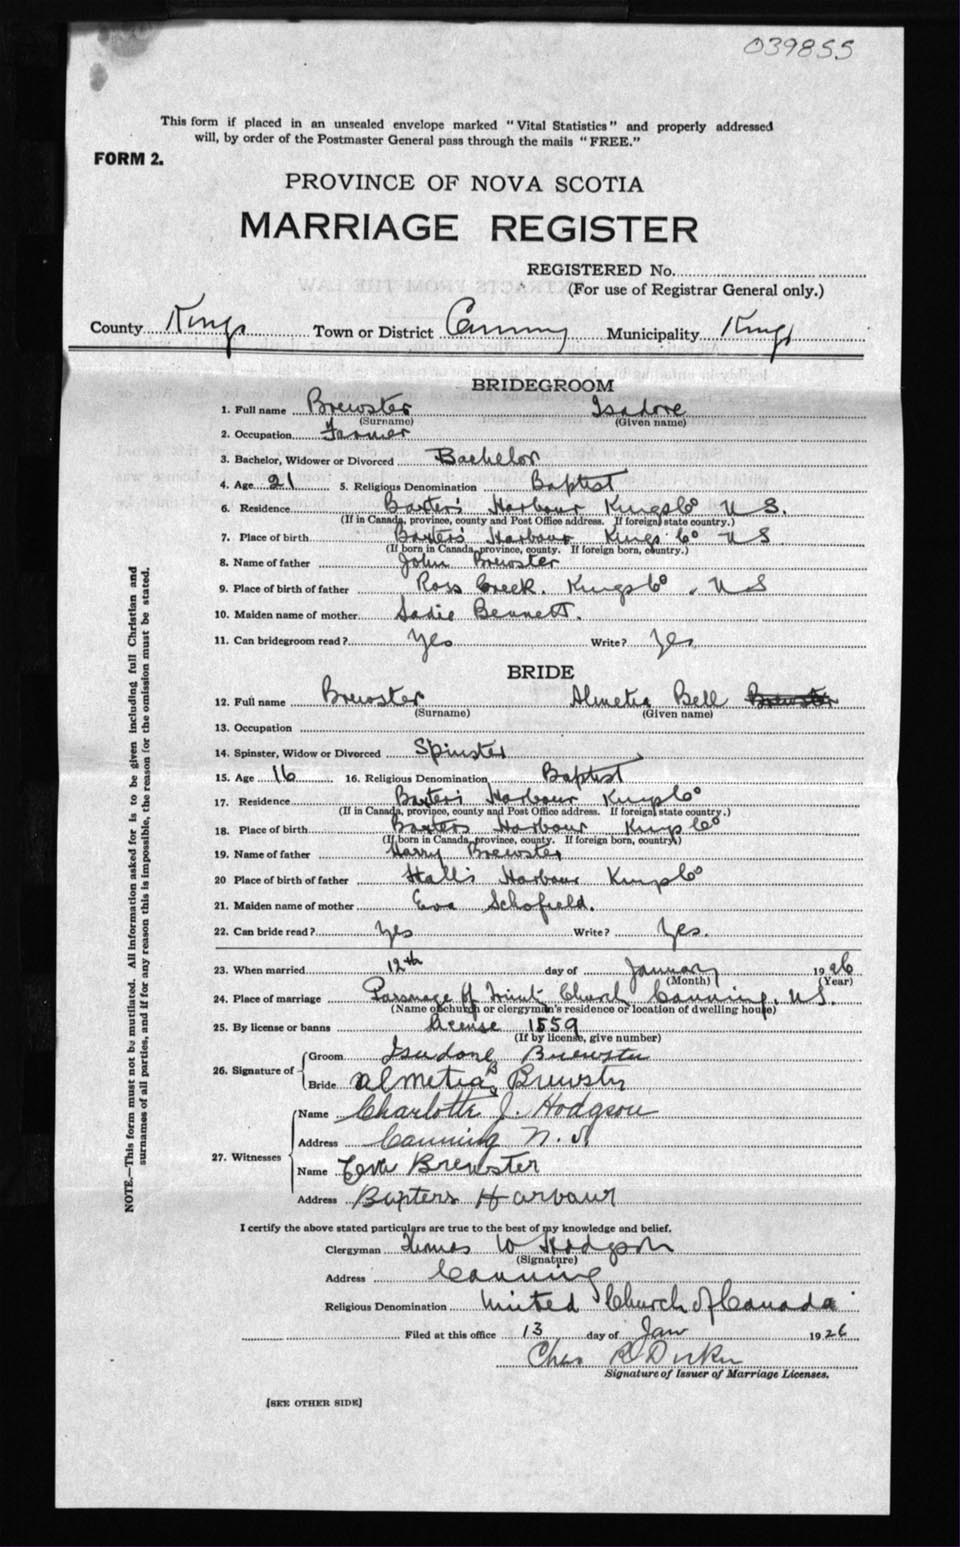 039855
This form if placed in an unsealed envelope marked "Vital Statistics" and properly addressed
will, by order of the Postmaster General pass through the mails "FREE."
FORM 2.
PROVINCE OF NOVA SCOTIA
MARRIAGE REGISTER
REGISTERED No.
(For use of Registrar General only.)
County Kings Town or District Canning Municipality Kings
BRIDEGROOM
1. Full name Brewster Isadore
(Surname) (Given name)
2. Occupation Farmer
3. Bachelor, Widower or Divorced Bachelor
4. Age 21 5. Religious Denomination Baptist
6. Residence Baxter's Harbour Kings Co N.S.
(If in Canada, province, county and Post Office address. If foreign, state country.)
7. Place of birth Baxters' Harbour Kings Co N S
(If born in Canada, province, county. If foreign born, country.)
8. Name of father John Brewster
9. Place of birth of father Ross Creek. Kings Co. N S
10. Maiden name of mother Sadie Bennett.
11. Can bridegroom read? Yes Write? Yes
BRIDE
12. Full name Brewster Almetia Bell Brewster
(Surname) (Given name)
13. Occupation
14. Spinster, Widow or Divorced Spinster
15. Age 16 16. Religious Denomination Baptist
17. Residence Baxter's Harbour Kings Co
(If in Canada, province, county and Post Office address. If foreign, state country.)
18. Place of birth Baxters Harbour Kings Co
(If born in Canada, province, county. If foreign born, country.)
19. Name of father Harry Brewster
20 Place of birth of father Hall's Harbour Kings Co
21. Maiden name of mother Eva Schofield.
22. Can bride read? Yes Write? Yes.
23. When married 12th day of January 1926
(Month) (Year)
24. Place of marriage Parsonage of Trinity Church Canning, N.S.
(Name of church or clergyman's residence or location of dwelling house)
25. By license or banns license 1559
(If by license, give number)
26. Signature of Groom Isadore Brewster
Bride Almetia B Brewster
27. Witnesses Name Charlotte J. Hodgson
Address Canning N. S
Name Eva Brewster
Address Baxters Harbour
I certify the above stated particulars are true to the best of my knowledge and belief.
Clergyman Thomas W Hodgson
(Signature)
Address Canning
Religious Denomination United Church of Canada
Filed at this office 13 day of Jan 1926
Chas
Signature of Issuer of Marriage Licenses.
[SEE OTHER SIDE]
NOTE.—This form must not be mutilated. All information asked for is to be given including full Christian and
surnames of all parties, and if for any reason this is impossible, the reason for the omission must be stated.